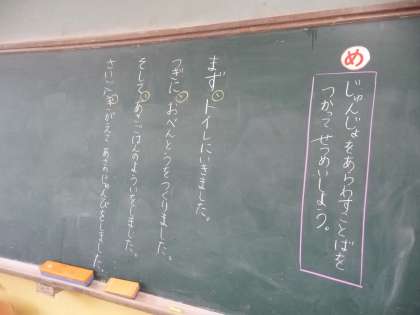 め
じゅんじょをあらわすことばを
つかってせつめいしよう。
まず、トイレにいきました。
つぎに、おべんとうをつくりました。
そして、あさごはんのよういをしました。
さいごに、がっこうのじゅんびをしました。